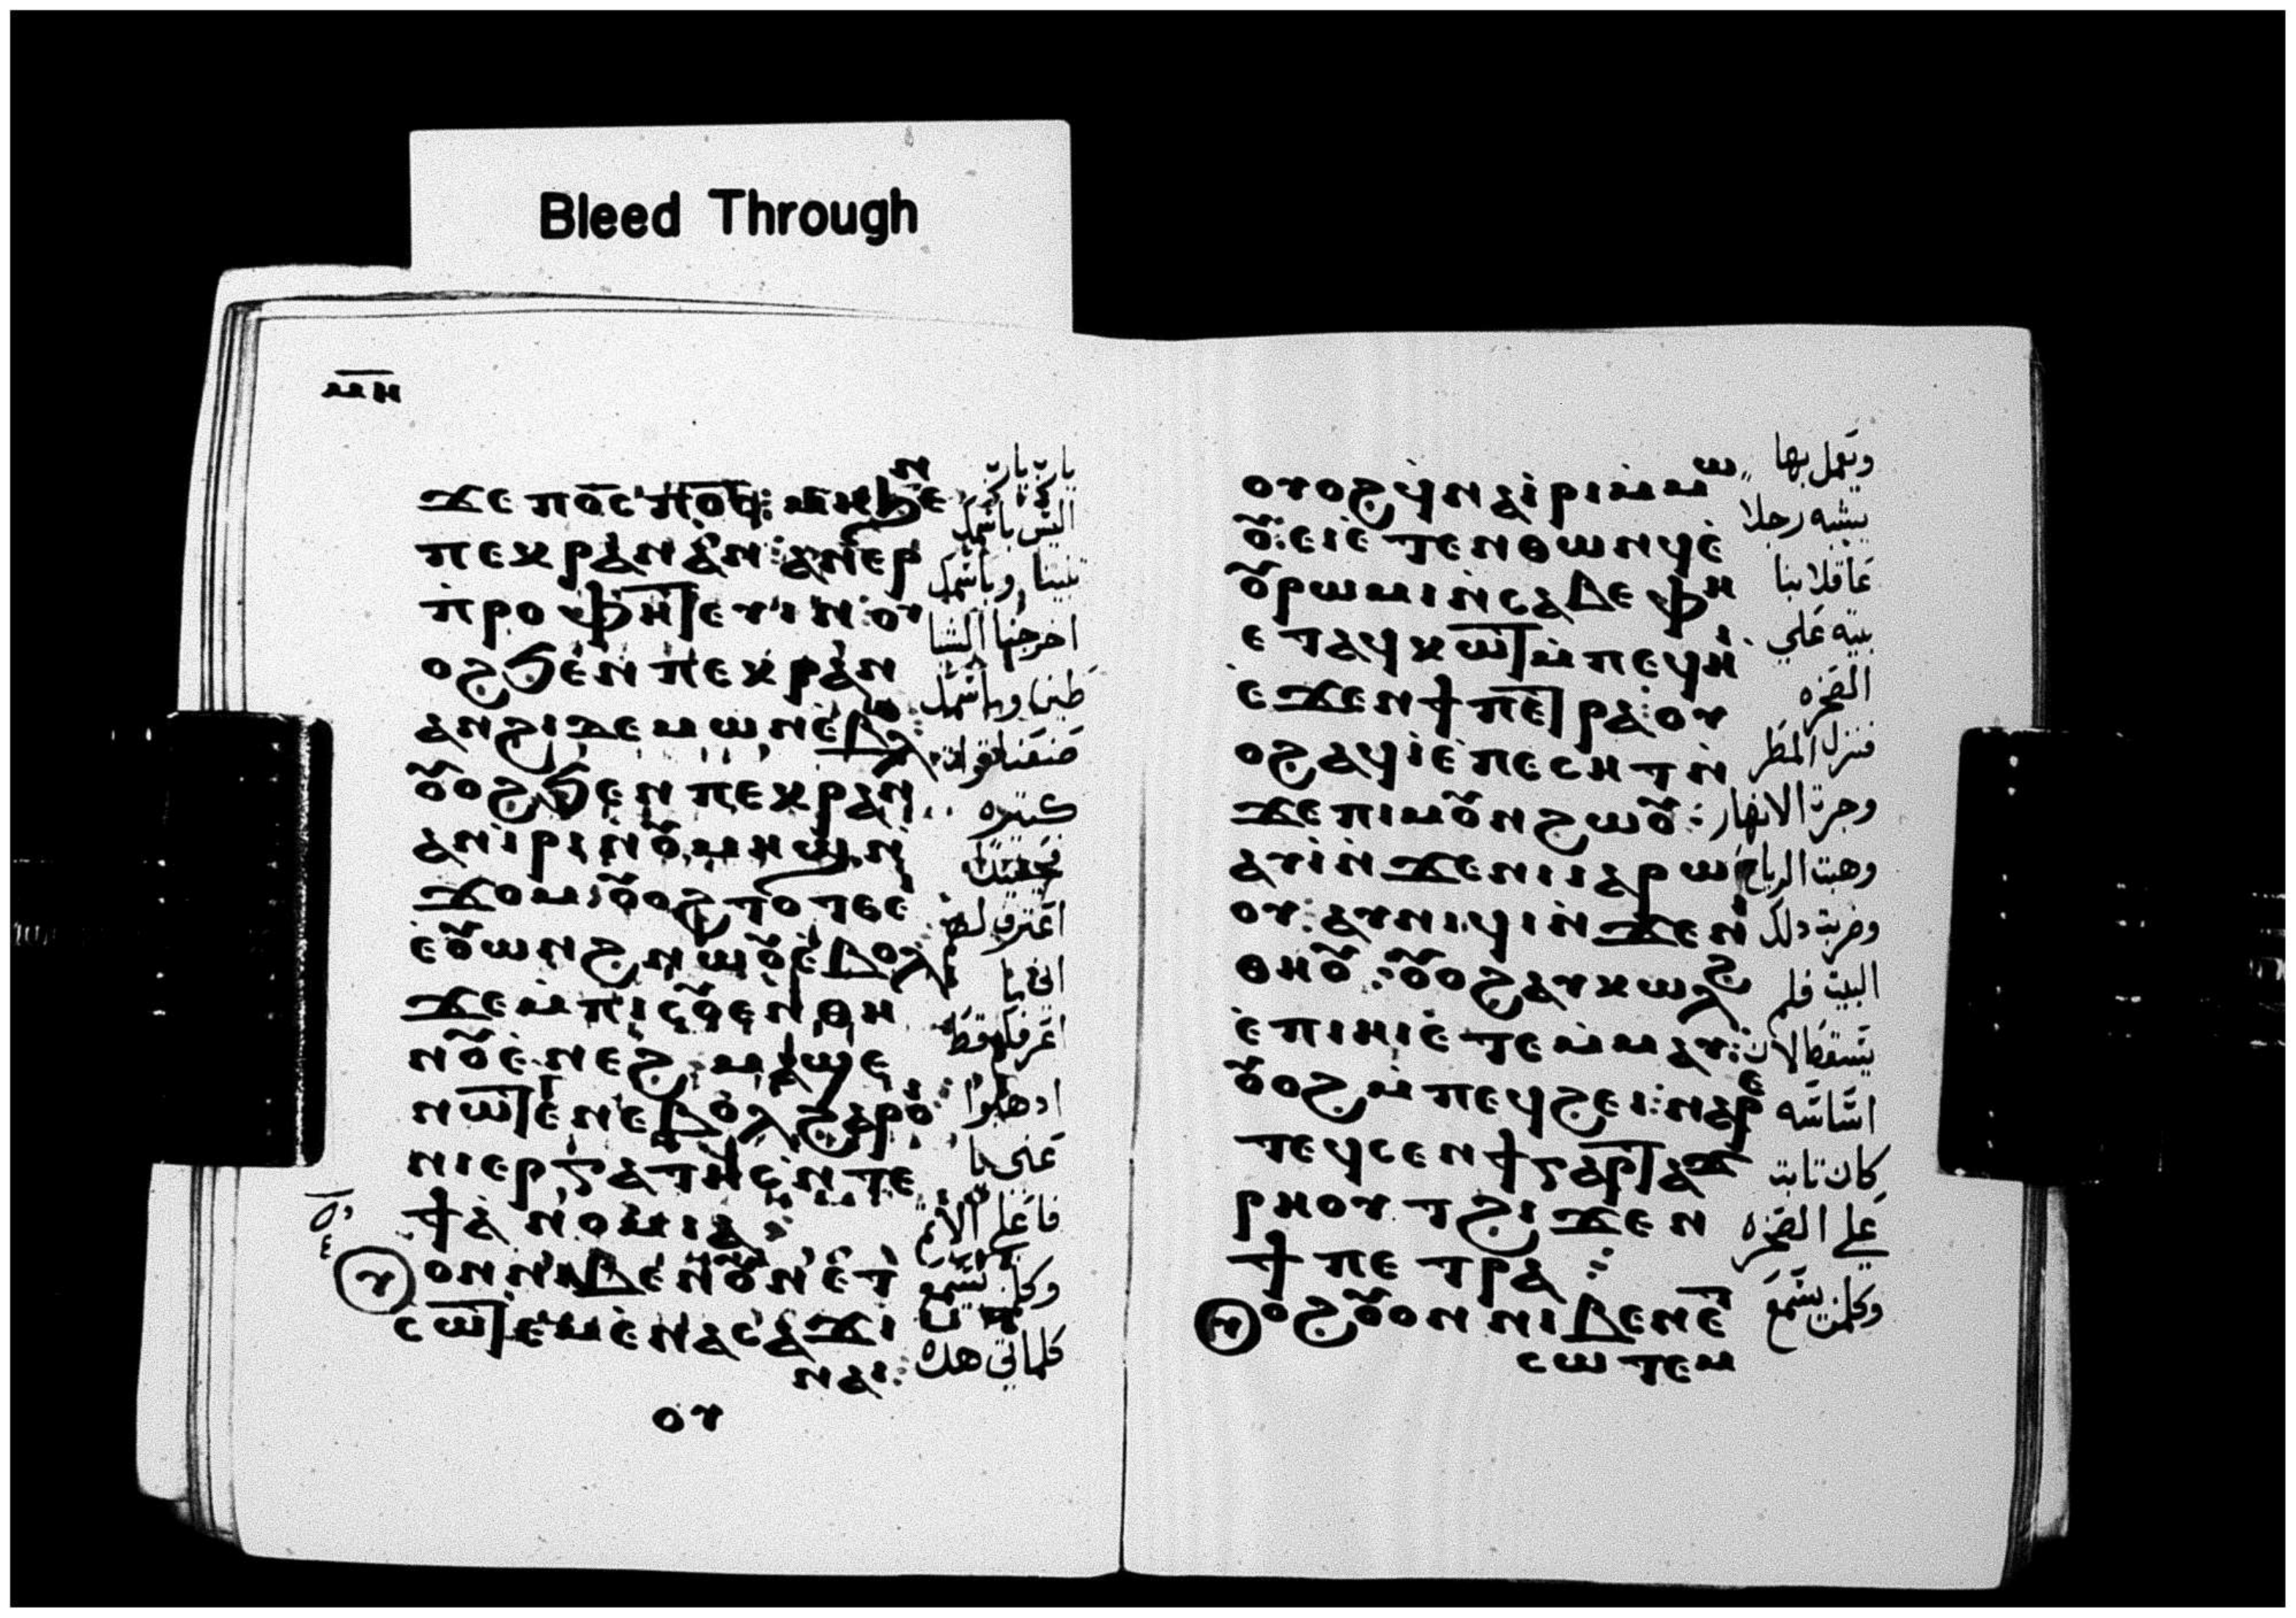 Bleed Through
ⲙⲏ
ϫⲉ ⲡⲟ̅ⲥ̅ ⲡⲟ̅ⲥ̅: ⲙⲏ ϧⲉⲛ
ⲡⲉⲕⲣⲁⲛ ⲁⲛ: ⲁⲛⲉⲣ
ⲡⲣⲟⲫⲏⲧⲉⲩⲓⲛ: ⲟⲩ
ⲟϩ ϧⲉⲛ ⲡⲉⲕⲣⲁⲛ
ⲁⲛϩⲓ ⲇⲉⲙⲱⲛ ⲉⲃⲟⲗ:
ⲟⲩⲟϩ ϧⲉⲛ ⲡⲉⲕⲣⲁⲛ
ⲁⲛⲓⲣⲓ ⲛⲟⲩⲙⲏϣ ⲛ
ϫⲟⲙ: ⲟⲩⲟϩ ⲧⲟⲧⲉ ⲉ
ⲉⲟⲩⲱⲛϩ ⲛⲱⲟⲩ ⲉⲃⲟⲗ
ϫⲉ ⲙⲡⲓⲥⲟⲩⲉⲛ ⲑⲏ
ⲛⲟⲩ ⲉⲛⲉϩ ⲙⲁϣⲉ
ⲛⲱⲧⲉⲛ ⲉⲃⲟⲗ ϩⲁⲣⲟⲓ
ⲛⲓⲉⲣⲅⲁⲧⲏⲥ ⲛⲧⲉ
ϯⲁⲛⲟⲙⲓⲁ:
ⲟⲩ
ⲟⲛ ⲛⲓⲃⲉⲛ ⲟⲩⲛ ⲉⲧ
ⲥⲱⲧⲉⲙ ⲉⲛⲁⲥⲁϫⲓ
ⲛⲁⲓ:
ⲟⲩ
يارب يارب
اليس باسمك
تنبينا وباسمك
اخرجنا الشيا
طين وباسمك
صنعنا قوات
كثيره
اعترف لهم
اني ما
اعرفكم قط
ادهبوا
عني يا
فاعلي الاثم
وكلمن يسمع
كلماتي هده
ⲟⲩⲟϩ ϥⲛⲁⲓⲣⲓ ⲙⲙⲱ
ⲟⲩ: ⲉⲓⲉⲧⲉⲛⲑⲱⲛϥ ⲉ
ⲟⲩⲣⲱⲙⲓ ⲛⲥⲁⲃⲉ ⲫⲏ
ⲉⲧⲁϥⲕⲱⲧ ⲙⲡⲉϥⲏⲓ
ⲉϫⲉⲛ ϯⲡⲉⲧⲣⲁ: ⲟⲩ
ⲟϩ ⲁϥⲓ ⲉⲡⲉⲥⲏⲧ ⲛ
ϫⲉ ⲡⲓⲙⲟⲩⲛϩⲱⲟⲩ:
ⲁⲩⲓ ⲛϫⲉ ⲛⲓⲓⲁⲣⲱ
ⲟⲩ: ⲁⲩⲛⲓϥⲓ ⲛϫⲉ ⲛⲓ
ⲑⲏⲟⲩ: ⲟⲩⲟϩ ⲁⲩⲕⲱⲗϩ
ⲉⲡⲓⲏⲓ ⲉⲧⲉⲙⲙⲁⲩ:
ⲟⲩⲟϩ ⲙⲡⲉϥϩⲉⲓ: ⲛⲁⲣⲉ
ⲧⲉϥⲥⲉⲛϯ ⲅⲁⲣ ⲧⲁϫ
ⲣⲏⲟⲩⲧ ϩⲓϫⲉⲛ
ϯⲡⲉⲧⲣⲁ:
ⲟϩ ⲟⲩⲟⲛ ⲛⲓⲃⲉⲛ ⲉⲧ
ⲥⲱⲧⲉⲙ
ويعمل بها
يشبه رجلا
عاقلا بنا
بيته علي
الصخره
فنزل المطر
وجرة الانهار
وهبت الرياح
وضربة دلك
البيت فلم
يسقط لان
اساسه
كان ثابت
علي الصخره
وكلمن يسمع